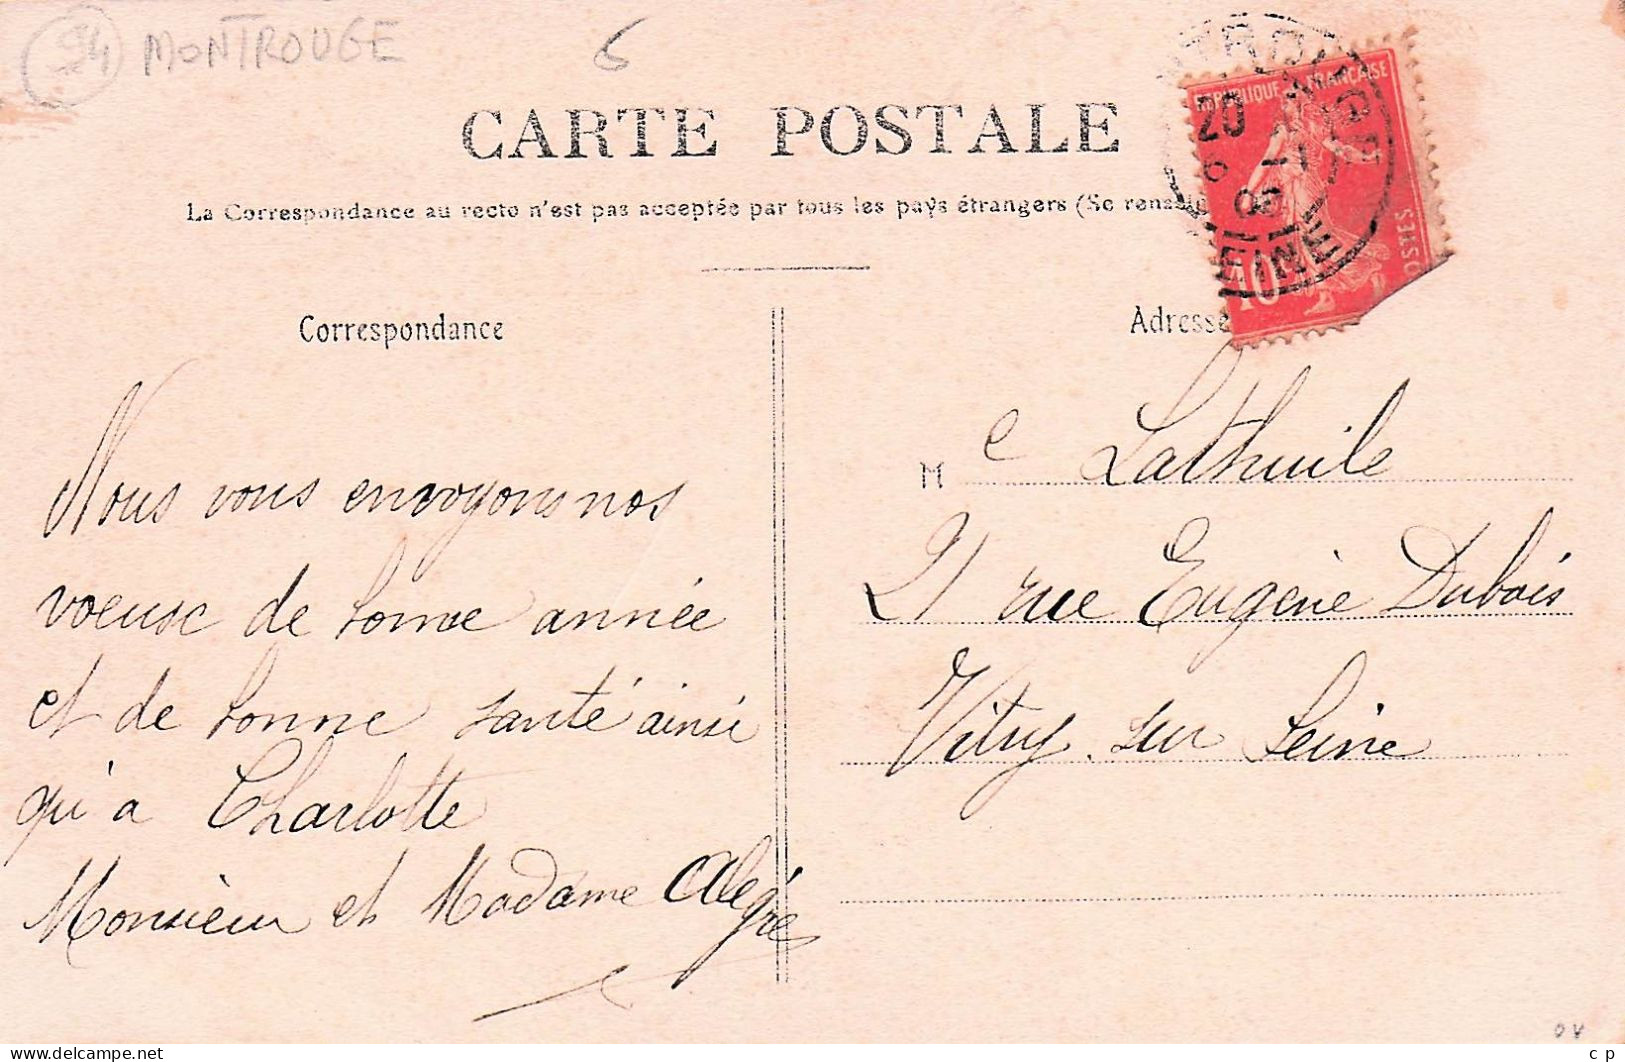 94 MONTROUGE
6
CARTE POSTALE
La Correspondance au recto n'est pas acceptée par tous les pays étrangers (Se
REPUBLIQUE FRANÇAISE
POSTES
10
20
6 -1
SEINE
Correspondance
Adresse
Nous vous envoyons nos
voeux de bonne année
et de bonne santé ainsi
qu'a Charlotte
Monsieur et Madame Alegre
M e Lathuile
21 rue Eugenie Dubois
Vitry sur Seine
c p